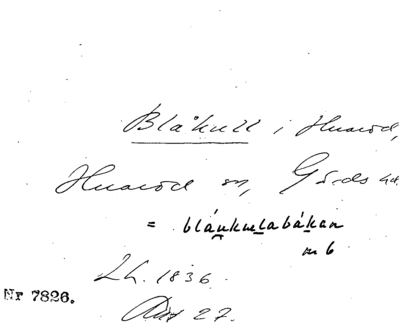 Blåkull i Huaröd,
Huaröd sn, Gärds hd.
= bláukuլlabákan
m b
Lh. 1836.
27.
Nr 7826.